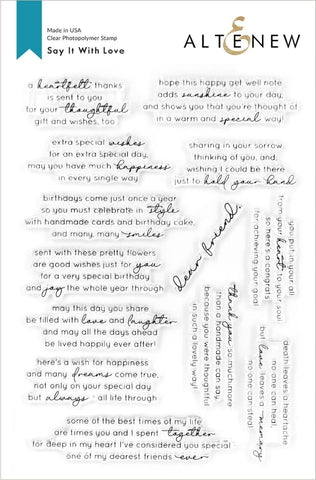 Made in USA
Clear Photopolymer Stamp
Say It With Love
ALTENEW
a heartfelt thanks
is sent to you
for your thoughtful
gift and wishes, too
hope this happy get well note
adds sunshine to your day,
and shows you that you're thought of
in a warm and special way!
extra special wishes
for an extra special day,
may you have much happiness
in every single way
sharing in your sorrow
thinking of you, and,
wishing I could be there
just to hold your hand
birthdays come just once a year
so you must celebrate in style
with handmade cards and birthday cake,
and many, many smiles
dear friend,
you put in your all
from your heart to your soul
so here's a congrats
for achieving your goal
sent with these pretty flowers
are good wishes just for you
for a very special birthday
and joy the whole year through
thank you so much more
than a handmade can say,
because you were thoughtful
in such a lovely way!
may this day you share
be filled with love and laughter
and may all the days ahead
be lived happily ever after!
death leaves a heartache
no one can heal,
but love leaves a memory
no one can steal
here's a wish for happiness
and many dreams come true,
not only on your special day
but always all life through
some of the best times of my life
are times you and I spent together
for deep in my heart I've considered you special
one of my dearest friends ever